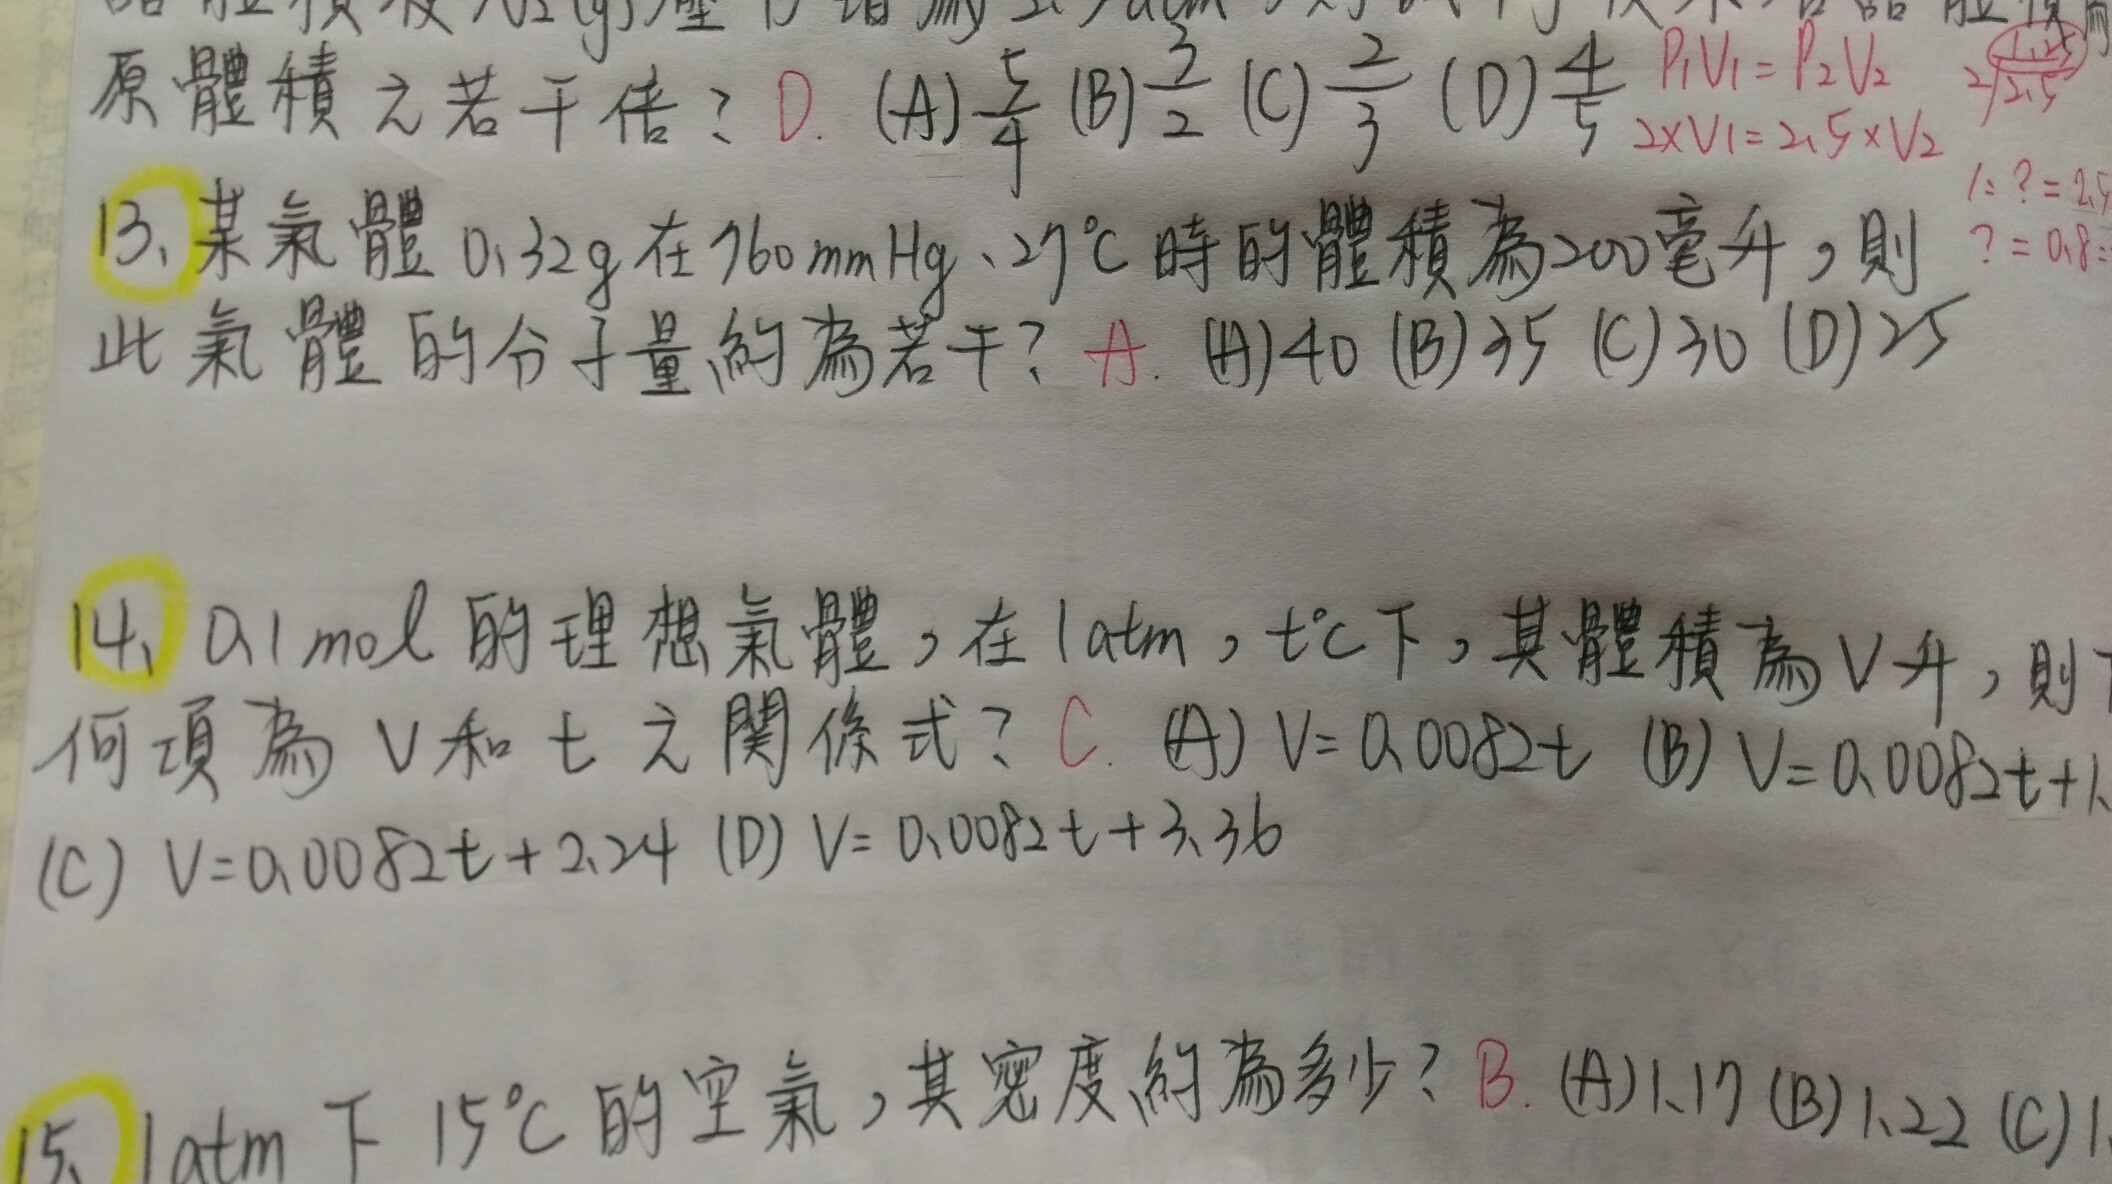 原體積之若干倍？D. (A) 5/4 (B) 3/2 (C) 2/3 (D) 4/5
P1V1=P2V2
2×V1=2.5×V2
1.25
2 2.5
1:?=2.5
?=0.8
13、某氣體0.32g在760mmHg、27℃時的體積為200毫升，則
此氣體的分子量約為若干？A. (A)40 (B)35 (C)30 (D)25
14、0.1mol的理想氣體，在1atm，t℃下，其體積為V升，則
何項為V和t之關係式？C. (A) V=0.0082t (B) V=0.0082t+1.
(C) V=0.0082t+2.24 (D) V=0.0082t+3.36
15、1atm下15℃的空氣，其密度約為多少？B. (A)1.17 (B)1.22 (C)1.